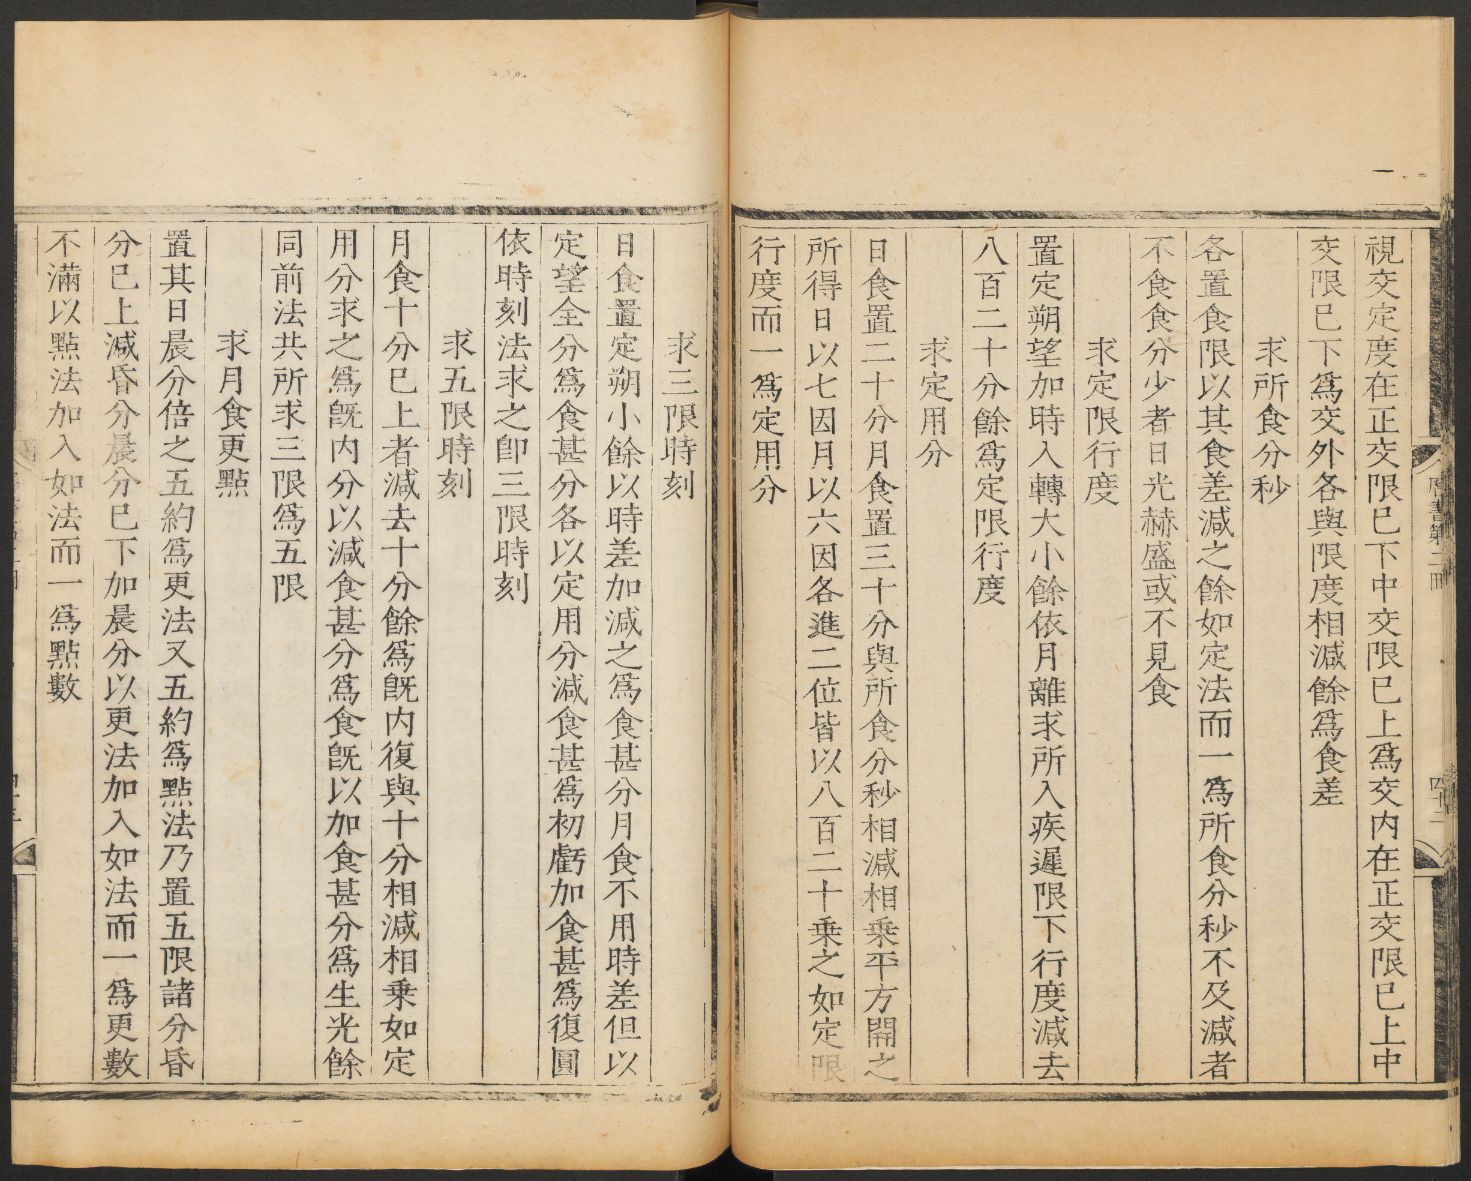 視交定度在正交限已下中交限已上爲交内在正交限已上中
交限已下爲交外各與限度相減餘爲食差
求所食分秒
各置食限以其食差減之餘如定法而一爲所食分秒不及減者
不食食分少者日光赫盛或不見食
求定限行度
置定朔望加時入轉大小餘依月離求所入疾遲限下行度減去
八百二十分餘爲定限行度
求定用分
日食置二十分月食置三十分與所食分秒相減相乗平方開之
所得日以七因月以六因各進二位皆以八百二十乗之如定限
行度而一爲定用分
求三限時刻
日食置定朔小餘以時差加減之爲食甚分月食不用時差但以
定望全分爲食甚分各以定用分減食甚爲初虧加食甚爲復圓
依時刻法求之卽三限時刻
求五限時刻
月食十分已上者減去十分餘爲旣内復與十分相減相乗如定
用分求之爲旣内分以減食甚分爲食旣以加食甚分爲生光餘
同前法共所求三限爲五限
求月食更點
置其日晨分倍之五約爲更法又五約爲點法乃置五限諸分昏
分已上減昏分晨分已下加晨分以更法加入如法而一爲更數
不滿以點法加入如法而一爲點數